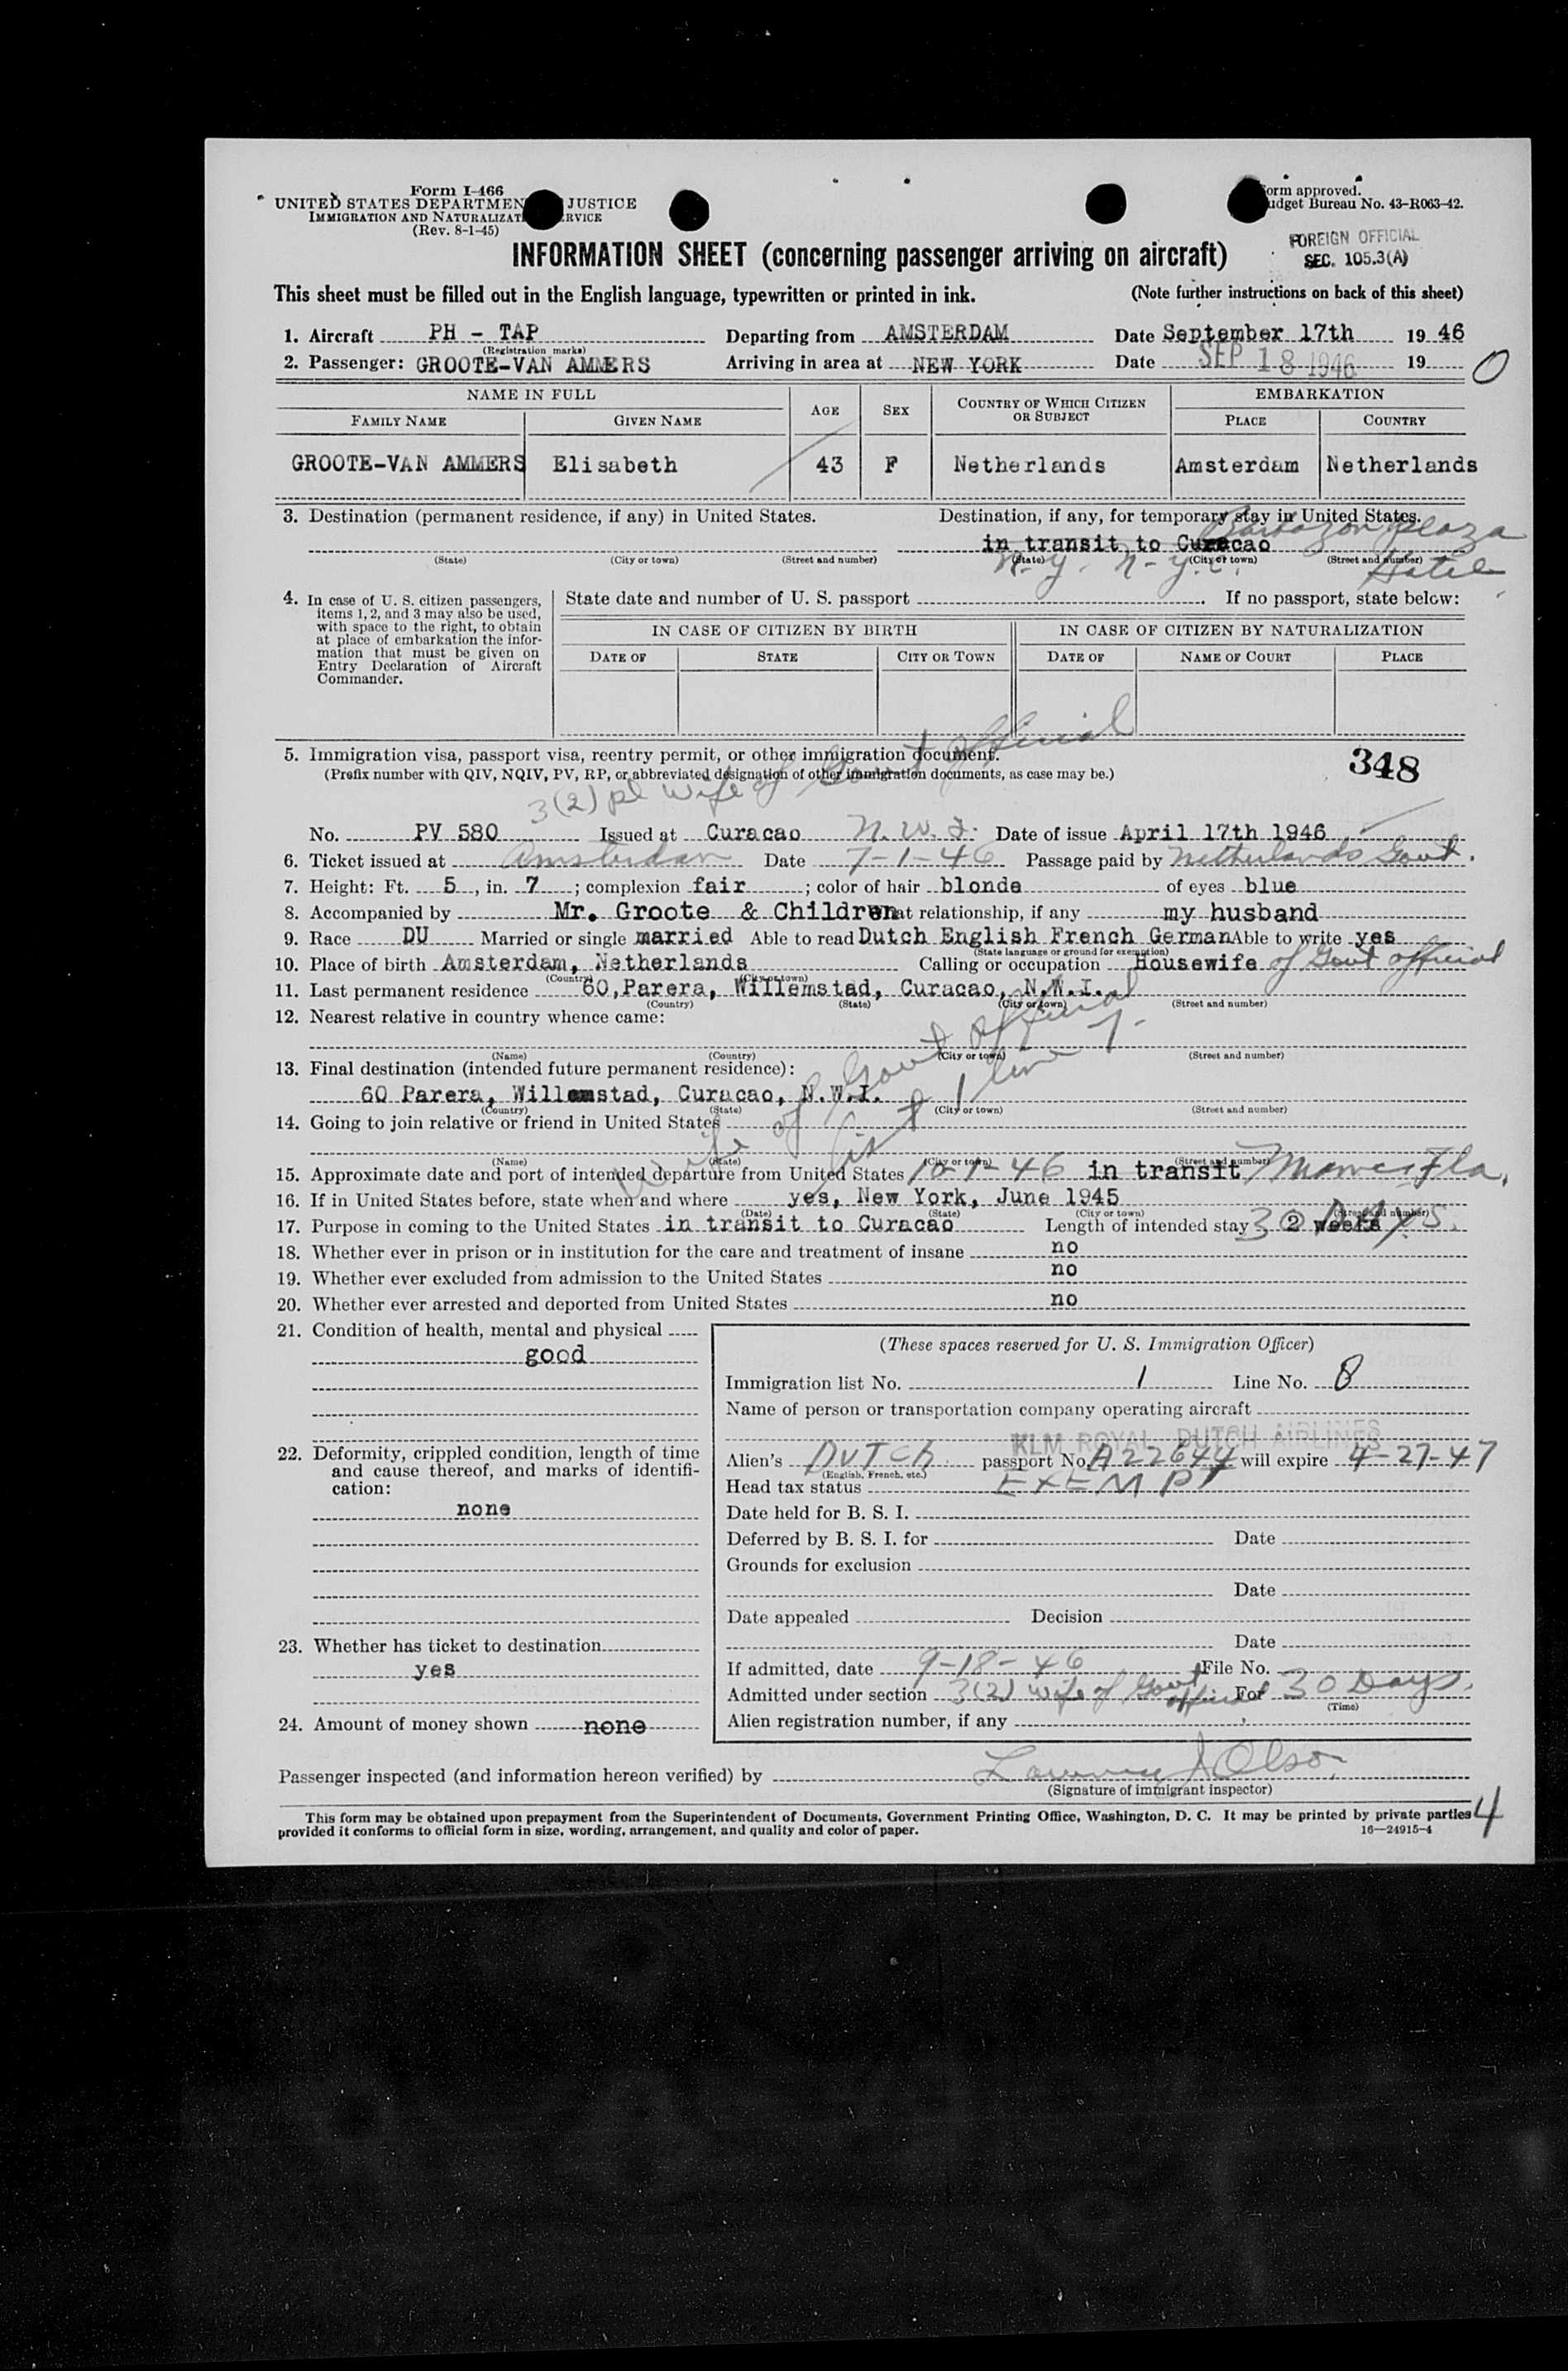 Form I-466
UNITED STATES DEPARTMEN JUSTICE
IMMIGRATION AND NATURALIZAT RVICE
(Rev. 8-1-45)
orm approved.
udget Bureau No. 43-R063-42.
FOREIGN OFFICIAL
SEC. 105.3(A)
INFORMATION SHEET (concerning passenger arriving on aircraft)
This sheet must be filled out in the English language, typewritten or printed in ink. (Note further instructions on back of this sheet)
1. Aircraft PH - TAP Departing from AMSTERDAM Date September 17th 19 46
(Registration marks)
2. Passenger: GROOTE-VAN AMMERS Arriving in area at NEW YORK Date SEP 18 1946 19 0
NAME IN FULL AGE SEX COUNTRY OF WHICH CITIZEN OR SUBJECT EMBARKATION
FAMILY NAME GIVEN NAME PLACE COUNTRY
GROOTE-VAN AMMERS Elisabeth 43 F Netherlands Amsterdam Netherlands
3. Destination (permanent residence, if any) in United States. Destination, if any, for temporary stay in United States.
in transit to Curacao Barbazon Plaza
(State) (City or town) (Street and number) (State) (City or town) (Street and number)
N.Y. N.Y.C. Hotel
4. In case of U. S. citizen passengers, items 1, 2, and 3 may also be used, with space to the right, to obtain at place of embarkation the information that must be given on Entry Declaration of Aircraft Commander.
State date and number of U. S. passport . If no passport, state below:
IN CASE OF CITIZEN BY BIRTH IN CASE OF CITIZEN BY NATURALIZATION
DATE OF STATE CITY OR TOWN DATE OF NAME OF COURT PLACE
5. Immigration visa, passport visa, reentry permit, or other immigration document.
(Prefix number with QIV, NQIV, PV, RP, or abbreviated designation of other immigration documents, as case may be.)
348
3(2) pl wife of Govt official
No. PV 580 Issued at Curacao N.W.I. Date of issue April 17th 1946
6. Ticket issued at Amsterdam Date 7-1-46 Passage paid by Netherlands Govt.
7. Height: Ft. 5, in. 7; complexion fair; color of hair blonde of eyes blue
8. Accompanied by Mr. Groote & Children at relationship, if any my husband
9. Race DU Married or single married Able to read Dutch English French German Able to write yes
(State language or ground for exemption)
10. Place of birth Amsterdam, Netherlands Calling or occupation Housewife of Govt official
(Country) (City or town)
11. Last permanent residence 60, Parera, Willemstad, Curacao, N.W.I.
(Country) (State) (City or town) (Street and number)
12. Nearest relative in country whence came:
(Name) (Country) (City or town) (Street and number)
13. Final destination (intended future permanent residence):
60 Parera, Willemstad, Curacao, N.W.I.
(Country) (State) (City or town) (Street and number)
Wife of Govt official
List 1 line 7-
14. Going to join relative or friend in United States
(Name) (State) (City or town) (Street and number)
15. Approximate date and port of intended departure from United States 10-1-46 in transit Miami Fla.
16. If in United States before, state when and where yes, New York, June 1945
(Date) (State) (City or town) (Street and number)
17. Purpose in coming to the United States in transit to Curacao Length of intended stay 2 weeks 30 DAYS.
18. Whether ever in prison or in institution for the care and treatment of insane no
19. Whether ever excluded from admission to the United States no
20. Whether ever arrested and deported from United States no
21. Condition of health, mental and physical
good
22. Deformity, crippled condition, length of time and cause thereof, and marks of identification:
none
23. Whether has ticket to destination
yes
24. Amount of money shown none
(These spaces reserved for U. S. Immigration Officer)
Immigration list No. 1 Line No. 8
Name of person or transportation company operating aircraft
KLM ROYAL DUTCH AIRLINES
Alien's DUTCH passport No. A22644 will expire 4-27-47
(English, French, etc.)
Head tax status EXEMPT
Date held for B. S. I.
Deferred by B. S. I. for Date
Grounds for exclusion
Date
Date appealed Decision
Date
If admitted, date 9-18-46 File No.
Admitted under section 3(2) wife of Govt official For 30 Days.
(Time)
Alien registration number, if any
Passenger inspected (and information hereon verified) by
(Signature of immigrant inspector)
This form may be obtained upon prepayment from the Superintendent of Documents, Government Printing Office, Washington, D. C. It may be printed by private parties
provided it conforms to official form in size, wording, arrangement, and quality and color of paper. 16—24915-4
4